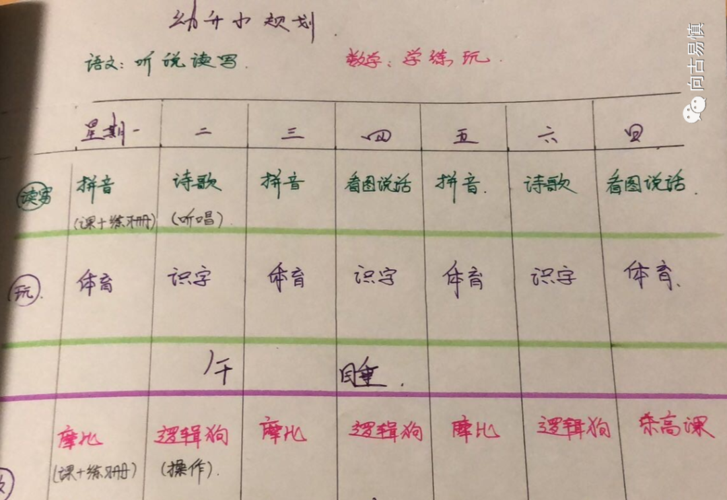 幼升小规划
语文：听说读写. 数学：学练玩.
星期一 二 三 四 五 六 日
读写 拼音 诗歌 拼音 看图说话 拼音. 诗歌 看图说话
(课+练习册) (听唱)
玩. 体育 识字 体育 识字 体育 识字 体育.
午 睡.
摩比 逻辑狗 摩比 逻辑狗 摩比 逻辑狗 乐高课
(课+练习册) (操作).
向古易慎